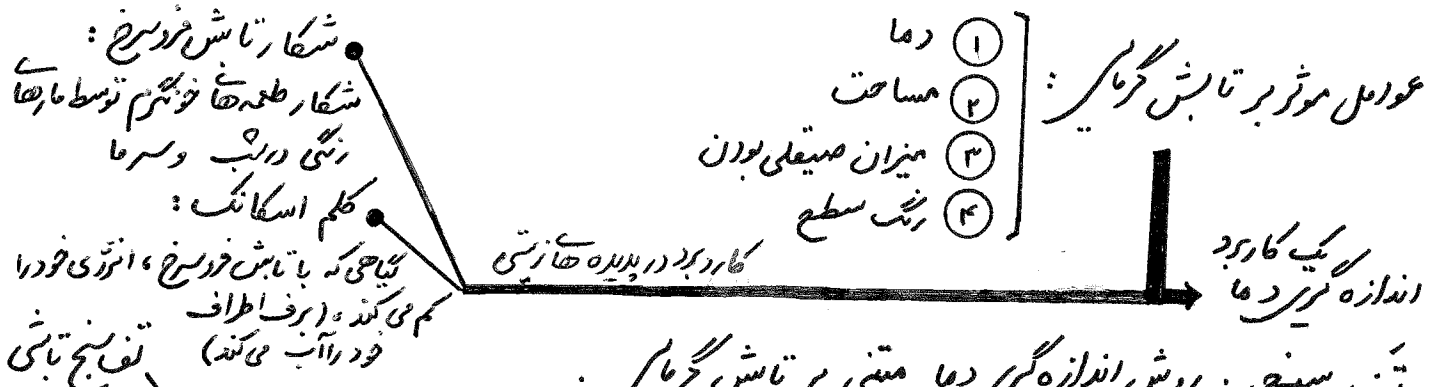 عوامل موثر بر تابش گرمایی :
۱ دما
۲ مساحت
۳ میزان صیقلی بودن
۴ رنگ سطح
یک کاربرد
اندازه گیری دما
کاربرد در پدیده های زیستی
شکار تابش فروسرخ :
شکار طعمه‌ها خونگرم توسط مارهای
زنگی در شب و سرما
کلم اسکانک :
گیاهی که با تابش فروسرخ ، انرژی خود را
کم می کند ، (برف اطراف
خود را آب می کند)
تف سنجی : روش اندازه گیری دما مبتنی بر تابش گرمایی .
تف سنج تابشی